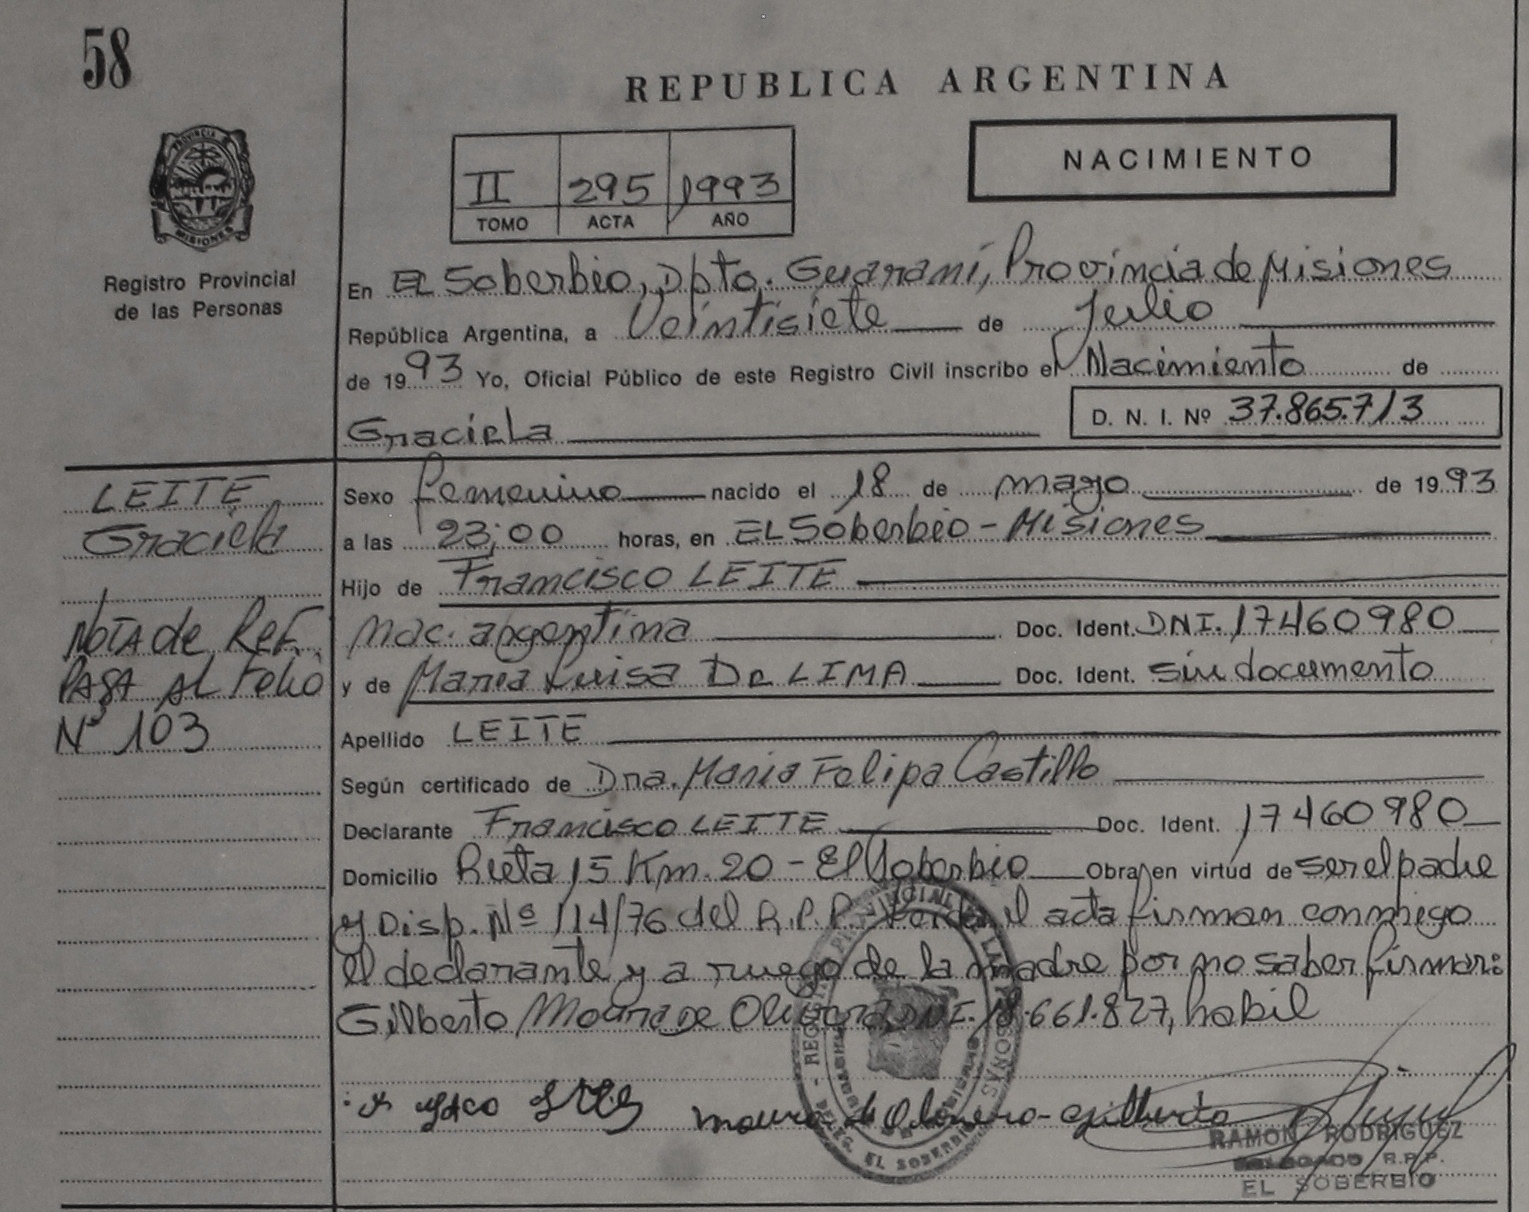 58
REPUBLICA ARGENTINA
PROVINCIA
MISIONES
Registro Provincial
de las Personas
II 295 1993
TOMO ACTA AÑO
NACIMIENTO
En EL Soberbio, Dpto. Guaraní, Provincia de Misiones
República Argentina, a Veintisiete de Julio
de 1993 Yo, Oficial Público de este Registro Civil inscribo el Nacimiento de
Graciela D. N. I. Nº 37.865.713
LEITE,
Graciela
NOTA de Ref.
PASA AL Folio
Nº 103
Sexo femenino nacido el 18 de mayo de 1993
a las 23:00 horas, en EL Soberbio - Misiones
Hijo de Francisco LEITE
nac. argentina Doc. Ident. DNI. 17460980
y de Maria Luisa De LIMA Doc. Ident. sin documento
Apellido LEITE
Según certificado de Dna. Maria Felipa Castillo
Declarante Francisco LEITE Doc. Ident. 17460980
Domicilio Ruta 15 Km. 20 - El Soberbio Obra en virtud de ser el padre
y Disp. Nº 114/76 del R.P.P. el acta firman conmigo
el declarante y a ruego de la madre por no saber firmar:
Gilberto Moura de Olivera, DNI. 18.661.827, habil
Gilberto
RAMON RODRIGUEZ
DELEGADO R.P.P.
EL SOBERBIO
DELEG. EL SOBERBIO